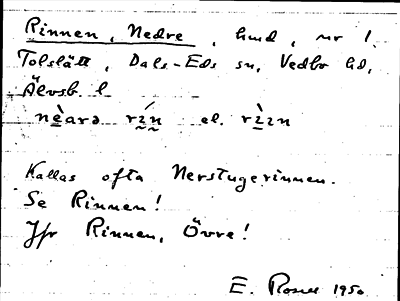 Rinnen, Nedre, hmd, nr 1
Tolslätt, Dals-Eds sn, Vedbo hd,
Älvsb. l
nèarə rín el. rìzn
Kallas ofta Nerstugerinnen.
Se Rinnen!
Jfr Rinnen, Övre!
E. Rosell 1950